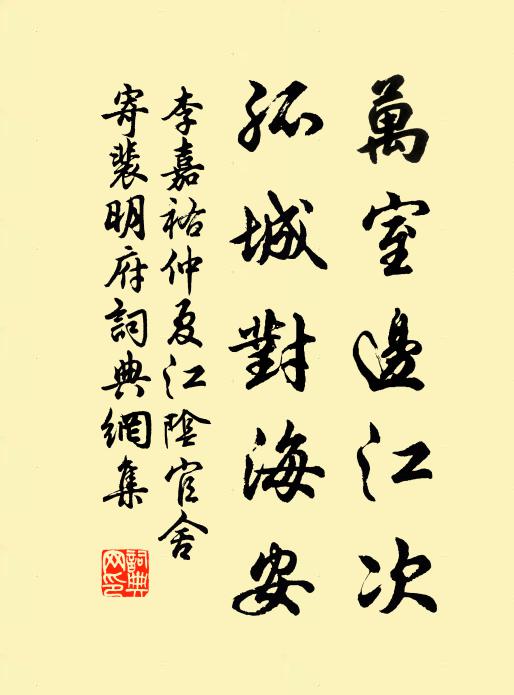 萬室邊江次
孤城對海安
李嘉祐仲夏江陰官舍
寄裴明府詞典網集
詞典
网印